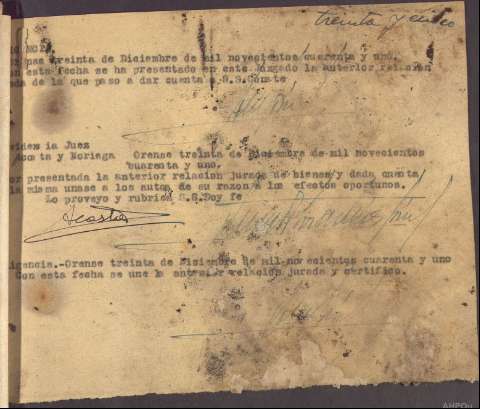 treinta y cinco
treinta de Diciembre de mil novecientos cuarenta y uno.
on esta fecha se ha presentado en este Juzgado la anterior relacion
ada de la que paso a dar cuenta a S.S. Conste
videncia Juez
Acosta y Noriega Orense treinta de Diciembre de mil novecientos
cuarenta y uno.
or presentada la anterior relacion jurada de bienes y dada cuenta
la misma unase a los autos de su razon a los efectos oportunos.
Lo proveyo y rubrica S.S. Doy fe
Acosta
igencia.-Orense treinta de Diciembre de mil novecientos cuarenta y uno
Con esta fecha se une la anterior relacion jurada y certifico.
AHPOu